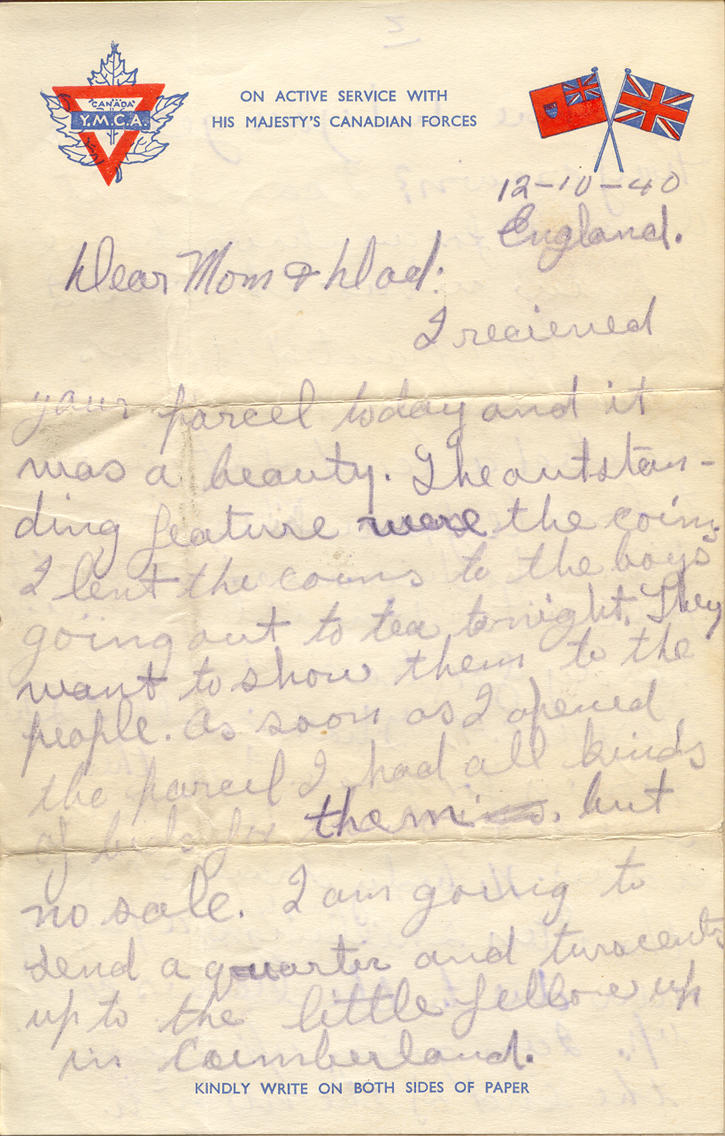 CANADA
Y.M.C.A.
ON ACTIVE SERVICE WITH
HIS MAJESTY'S CANADIAN FORCES
12-10-40
England.
Dear Mom & Dad.
I recieved
your parcel today and it
was a beauty. The outstan-
ding feature were the coins
I lent the coins to the boys
going out to tea tonight. They
want to show them to the
people. As soon as I opened
the parcel I had all kinds
of bids for them. but
no sale. I am going to
send a quarter and two cents
up to the little fellow up
in Coimberland.
KINDLY WRITE ON BOTH SIDES OF PAPER